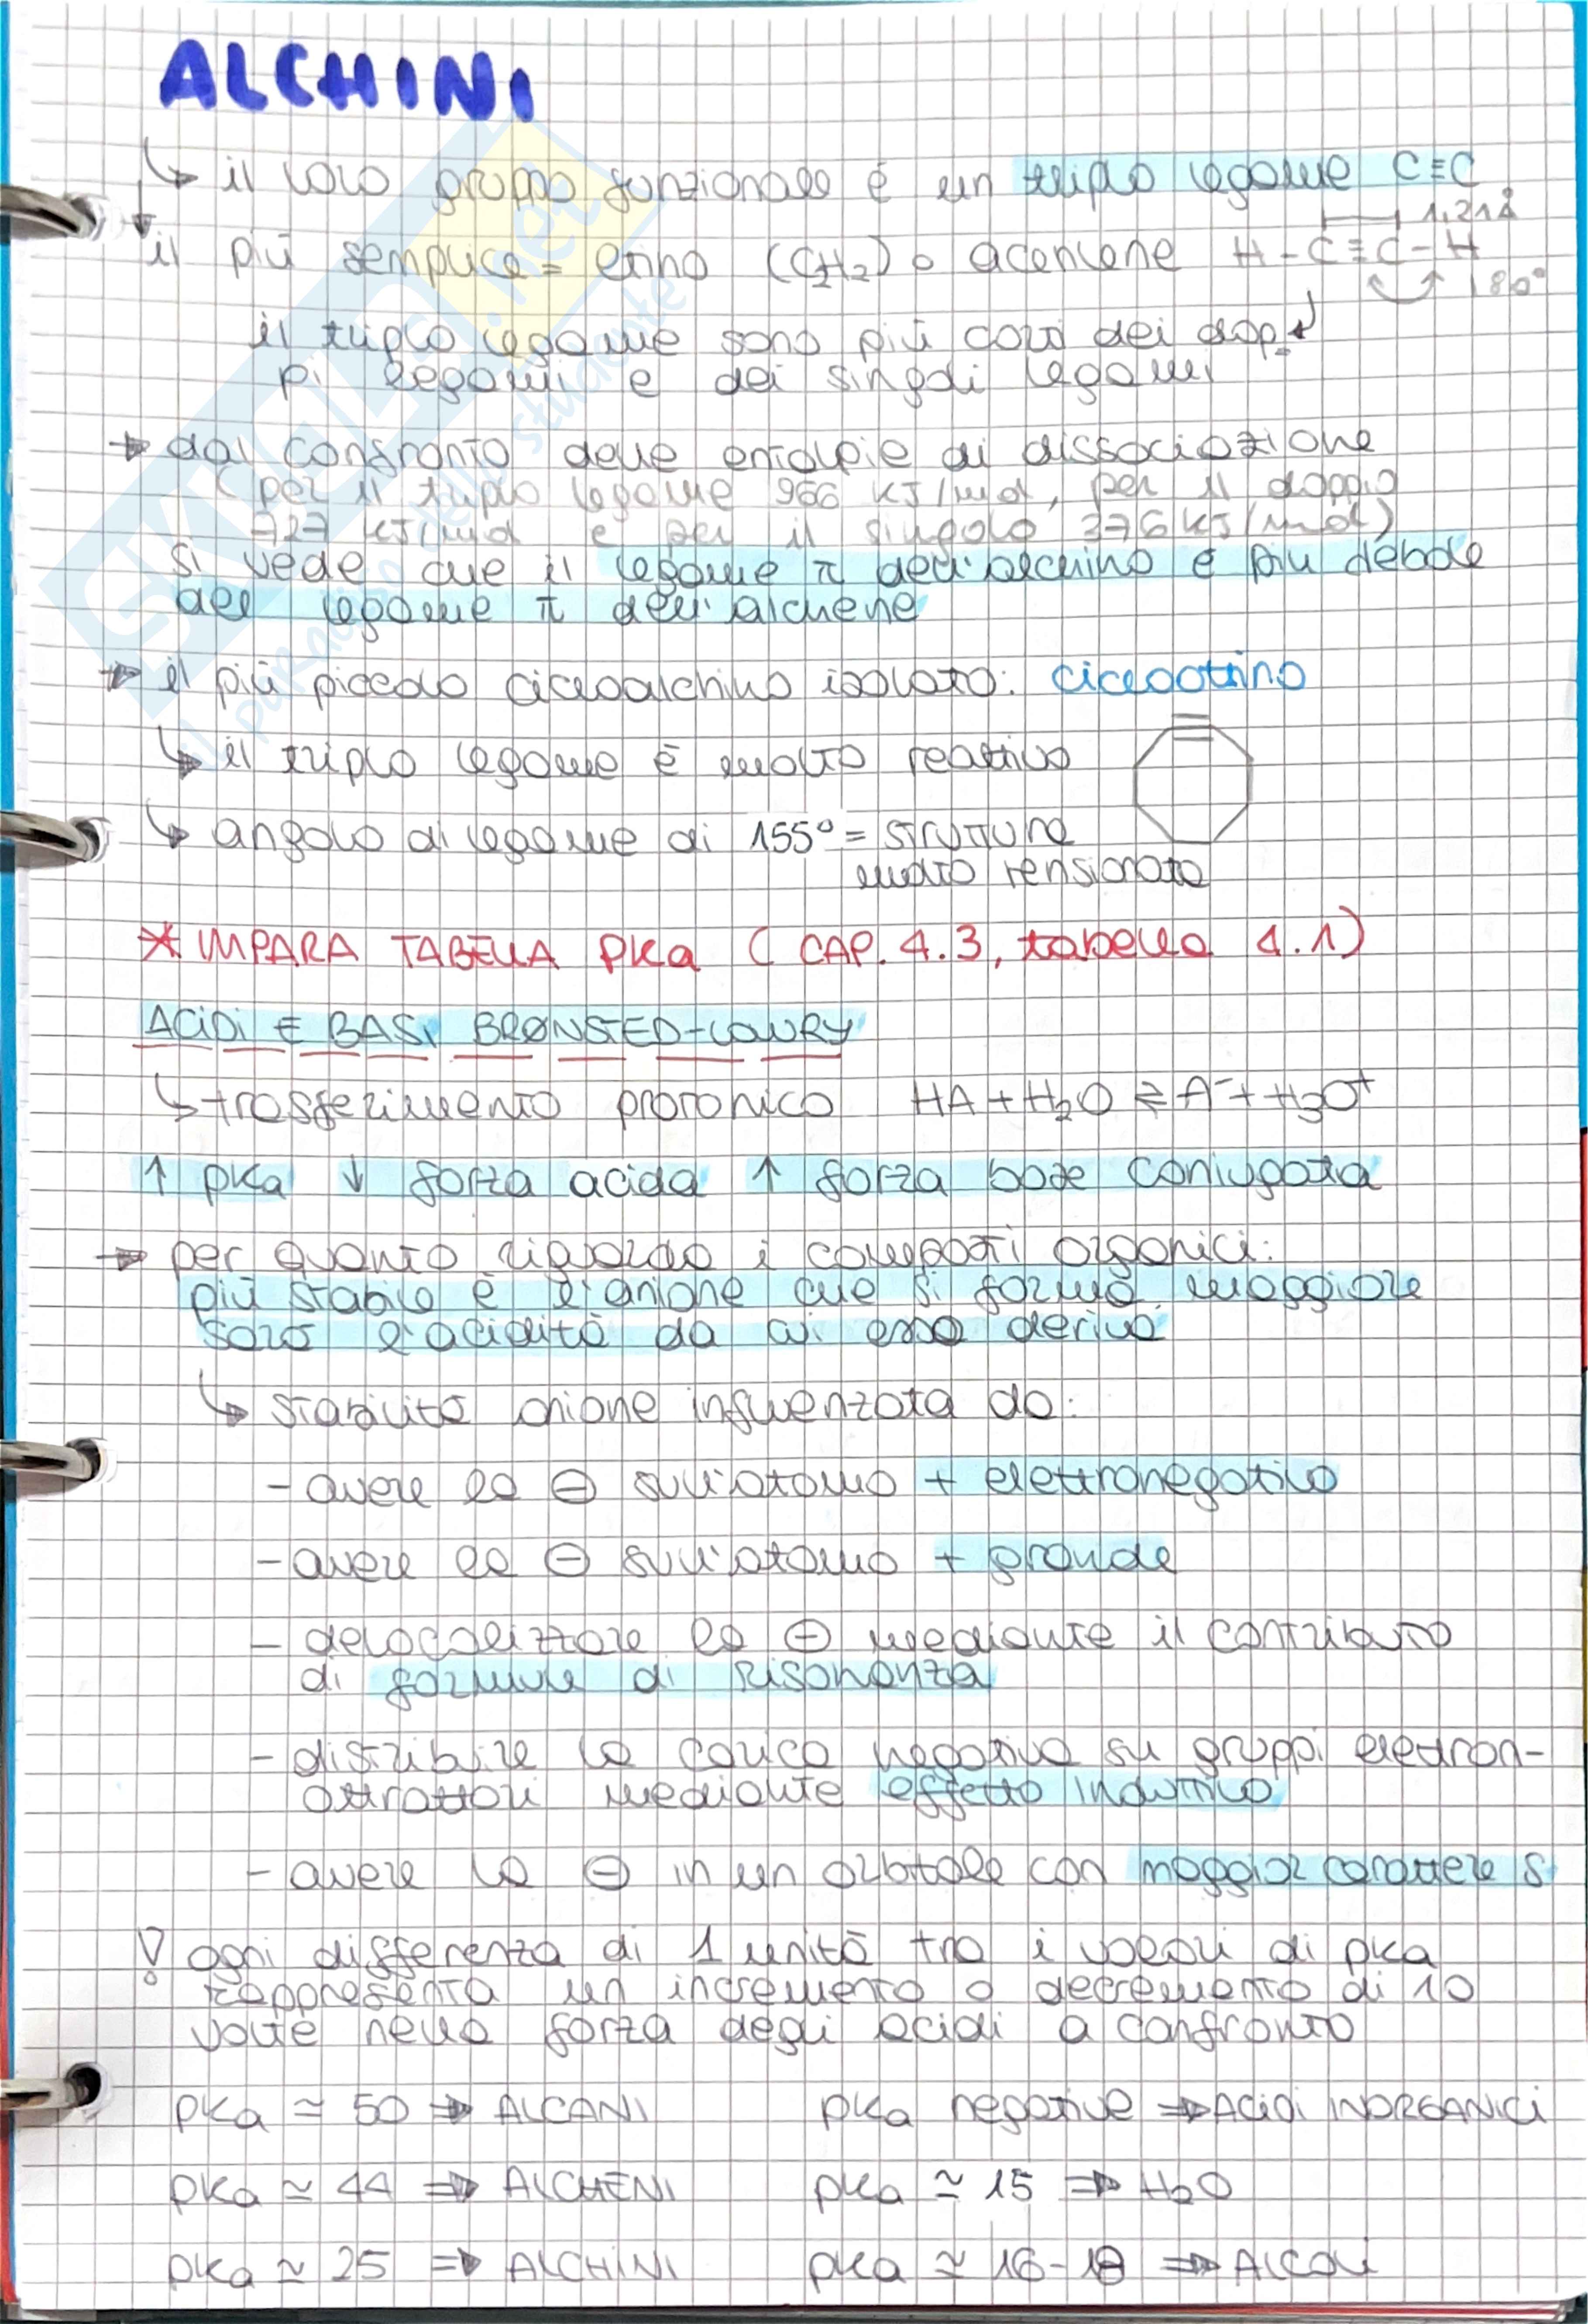 ALCHINI
↳ il loro gruppo funzionale è un triplo legame C≡C
il più semplice = etino (C2H2) o acetilene H-C≡C-H
1,21Å
180°
il triplo legame sono più corti dei dop-
pi legami e dei singoli legami
→ dal confronto delle entalpie di dissociazione
(per il triplo legame 966 KJ/mol, per il doppio
727 KJ/mol e per il singolo 376 KJ/mol)
si vede che il legame π dell'alchino è più debole
del legame π dell'alchene
→ il più piccolo cicloalchino isolato: cicloottino
↳ il triplo legame è molto reattivo
↳ angolo di legame di 155° = struttura
molto tensionata
* IMPARA TABELLA PKa ( CAP. 4.3, tabella 4.1)
ACIDI E BASI BRØNSTED-LOWRY
↳ trasferimento protonico HA + H2O ⇌ A⁻ + H3O⁺
↑ pKa ↓ forza acida ↑ forza base coniugata
→ per quanto riguarda i composti organici:
più stabile è l'anione che si forma, maggiore
sarà l'acidità da cui esso deriva
↳ stabilità anione influenzata da:
- avere la ⊖ sull'atomo + elettronegativo
- avere la ⊖ sull'atomo + grande
- delocalizzare la ⊖ mediante il contributo
di formule di risonanza
- distribuire la carica negativa su gruppi elettron-
attrattori mediante effetto induttivo
- avere la ⊖ in un orbitale con maggior carattere s
! ogni differenza di 1 unità tra i valori di pKa
rappresenta un incremento o decremento di 10
volte nella forza degli acidi a confronto
pKa ≃ 50 → ALCANI pKa negative → ACIDI INORGANICI
pKa ≃ 44 → ALCHENI pKa ≃ 15 → H2O
pKa ≃ 25 → ALCHINI pKa ≃ 16-18 → ALCOLI
SKUOLA.net
il paradiso dello studente